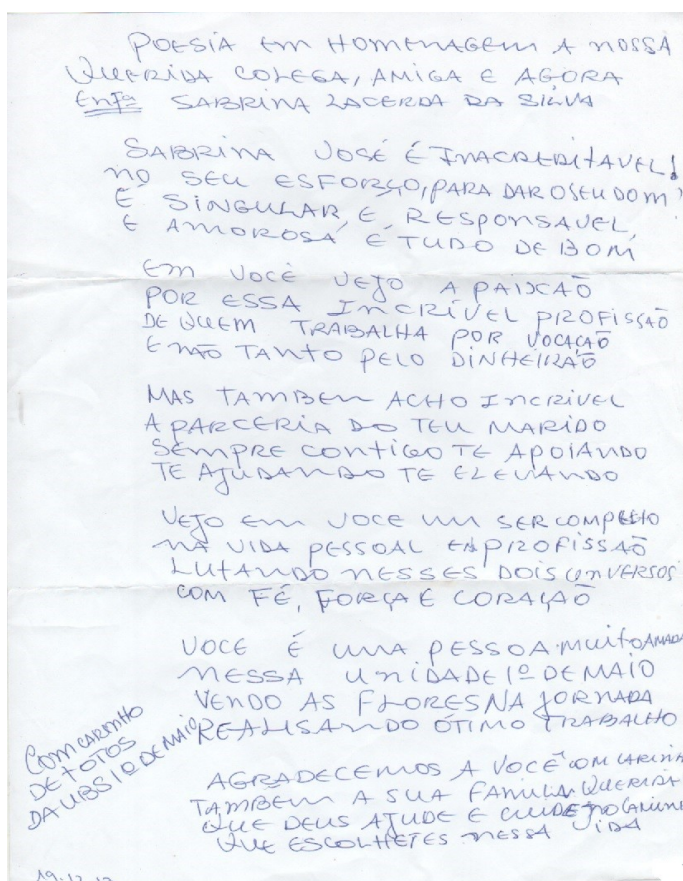 POESIA EM HOMENAGEM A NOSSA
QUERIDA COLEGA, AMIGA E AGORA
ENFª SABRINA LACERDA DA SILVA
SABRINA VOSÊ É INACREDITAVEL!
NO SEU ESFORÇO, PARA DAR O SEU DOM
É SINGULAR, E RESPONSAVEL,
E AMOROSA É TUDO DE BOM
EM VOCÊ VEJO A PAIXÃO
POR ESSA INCRÍVEL PROFISSÃO
DE QUEM TRABALHA POR VOCAÇÃO
E NÃO TANTO PELO DINHEIRÃO
MAS TAMBEM ACHO INCRIVEL
A PARCERIA DO TEU MARIDO
SEMPRE CONTIGO TE APOIANDO
TE AJUDANDO TE ELEVANDO
VEJO EM VOCE UM SER COMPLETO
NA VIDA PESSOAL E PROFISSÃO
LUTANDO NESSES DOIS UNVERSOS
COM FÉ, FORÇA E CORAÇÃO
VOCE É UMA PESSOA MUITO AMADA
NESSA UNIDADE 1º DE MAIO
VENDO AS FLORES NA JORNADA
REALISANDO ÓTIMO TRABALHO
COM CARINHO
DE TOTOS
DA UBS 1º DE MAIO
AGRADECEMOS A VOCÊ COM CARINH
TAMBEM A SUA FAMILIA QUERIDA
QUE DEUS AJUDE E CUIDE NO CAMINH
QUE ESCOLHETES NESSA VIDA
19.12.12